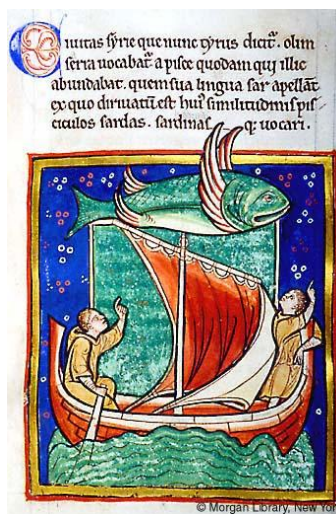 Ciuitas syrie que nunc tyrus dicit᷑. olim
seria uocabat᷑ a pisce quodam qui illic
abundabat. quem sua lingua sar apellãt
ex quo diriuatũ est huiꝰ similitudinis pis
ciculos sardas. sardinas q; uocari.
© Morgan Library, New Yo